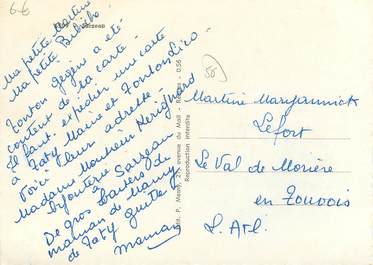 6-6
Sarzeau
Ma petite Martine
Ma petite
Tonton Gégène a été
content de ta carte.
Il faut expédier une carte
à Taty Marie et Tonton
Voici leur adresse -
Madame Monsieur
Bijouterie Sarzeau
De gros baisers de
maman de Mamy
de Taty guite
Maman
Edit. P. Massy, avenue du Mail - Rennes - 0.56
Reproduction interdite
56
Martine Maryannick
Lefort
Le Val de Morière
en Touvois
L. Atl.